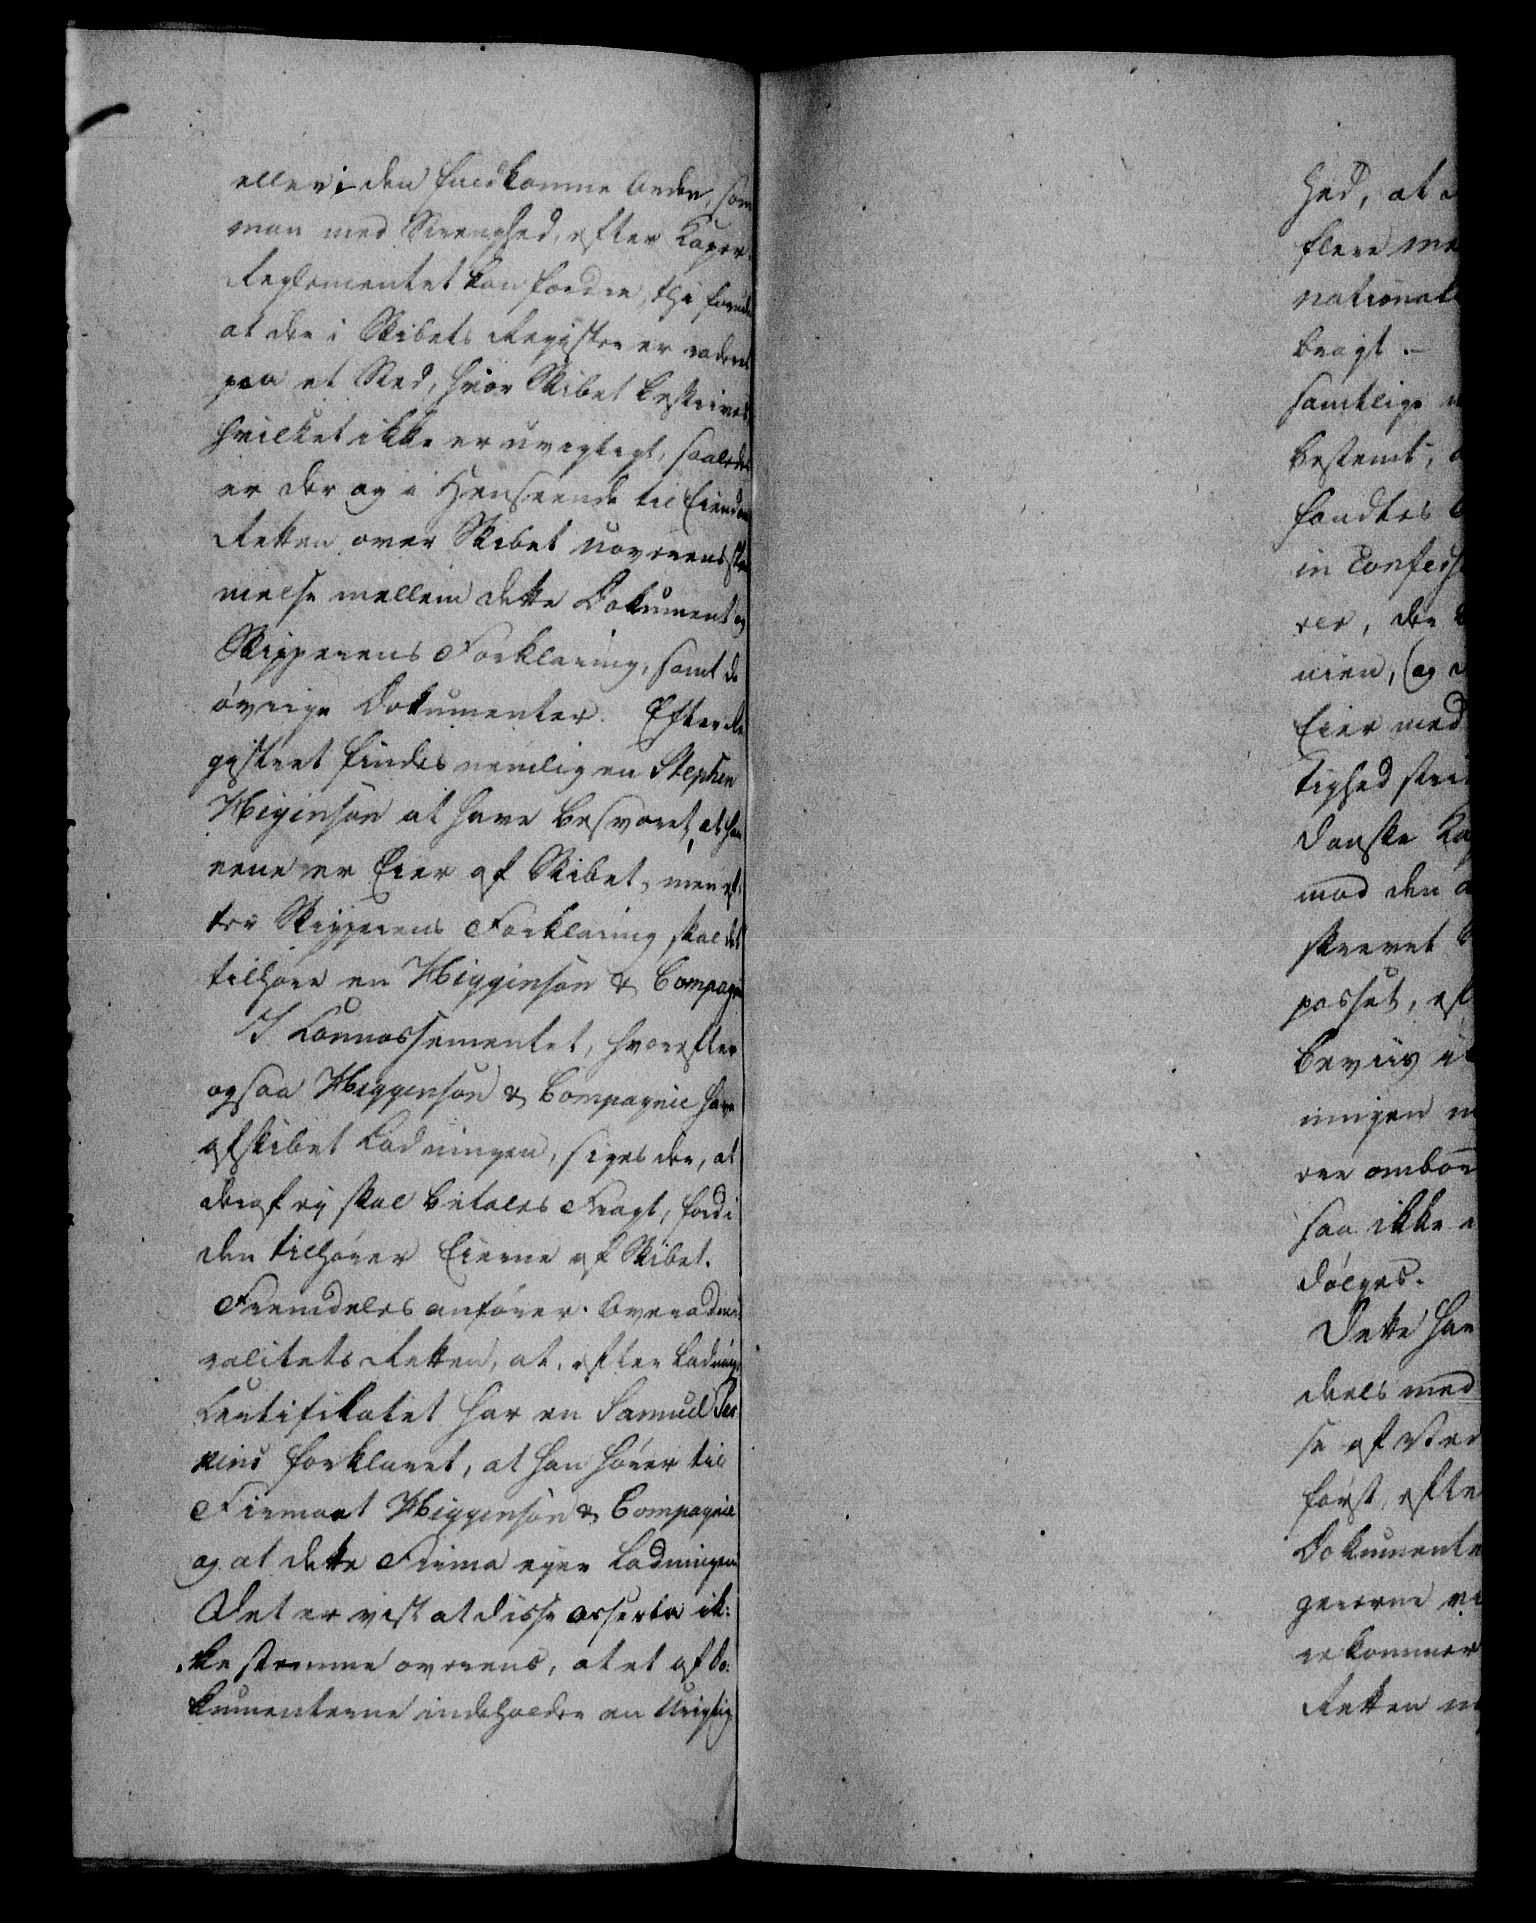 eller i den fuldkomne Orden, som
man med Strenghed, efter Kaper
Reglementet kan fordre, thi, foruden
at der i Skibets Register er raderet
paa et Sted, hvor Skibet beskrives
hvilket ikke er uvigtigt, saaledes
er der og i Henseende til Eiendoms
Retten over Skibet uoverensstem
melse mellem dette Dokument og
Skipperens Forklaring, samt de
øvrige Dokumenter. Efter Re
gistret findes nemlig en Stephen
Higinson at have besvoret, at han
ene er Eier af Skibet, men ef
ter Skipperens Forklaring skal det
tilhøre en Higginson & Compagnie
I Connossementet, hvorefter
ogsaa Higginson & Compagnie har
afskibet Ladningen, siges der, at
deraf ej skal betales Fragt, fordi
den tilhører Eierne af Skibet.
Fremdeles anfører Overadmi
ralitets Retten, at, efter Ladnings
Certifikatet har en Samuel Per
kins forklaret, at han hører til
Firmaet Higginson & Compagnie
og at dette Firma ejer Ladningen
Det er vist at disse asserta ik:
ke stemme overens, at et af Do:
kumenterne indeholder en Urigtig
hed, at
flere
national
bragt. –
samtlige
bestemt,
fandtes
in
rer, der
nien, (og
Eier med
tighed
danske
mod den
skrevet
passet,
beviis
ningen
rer ombor
saa ikke
dølges.
Dette har
deels med
se af
først, efter
Dokumente
geierne
rekommer
Retten